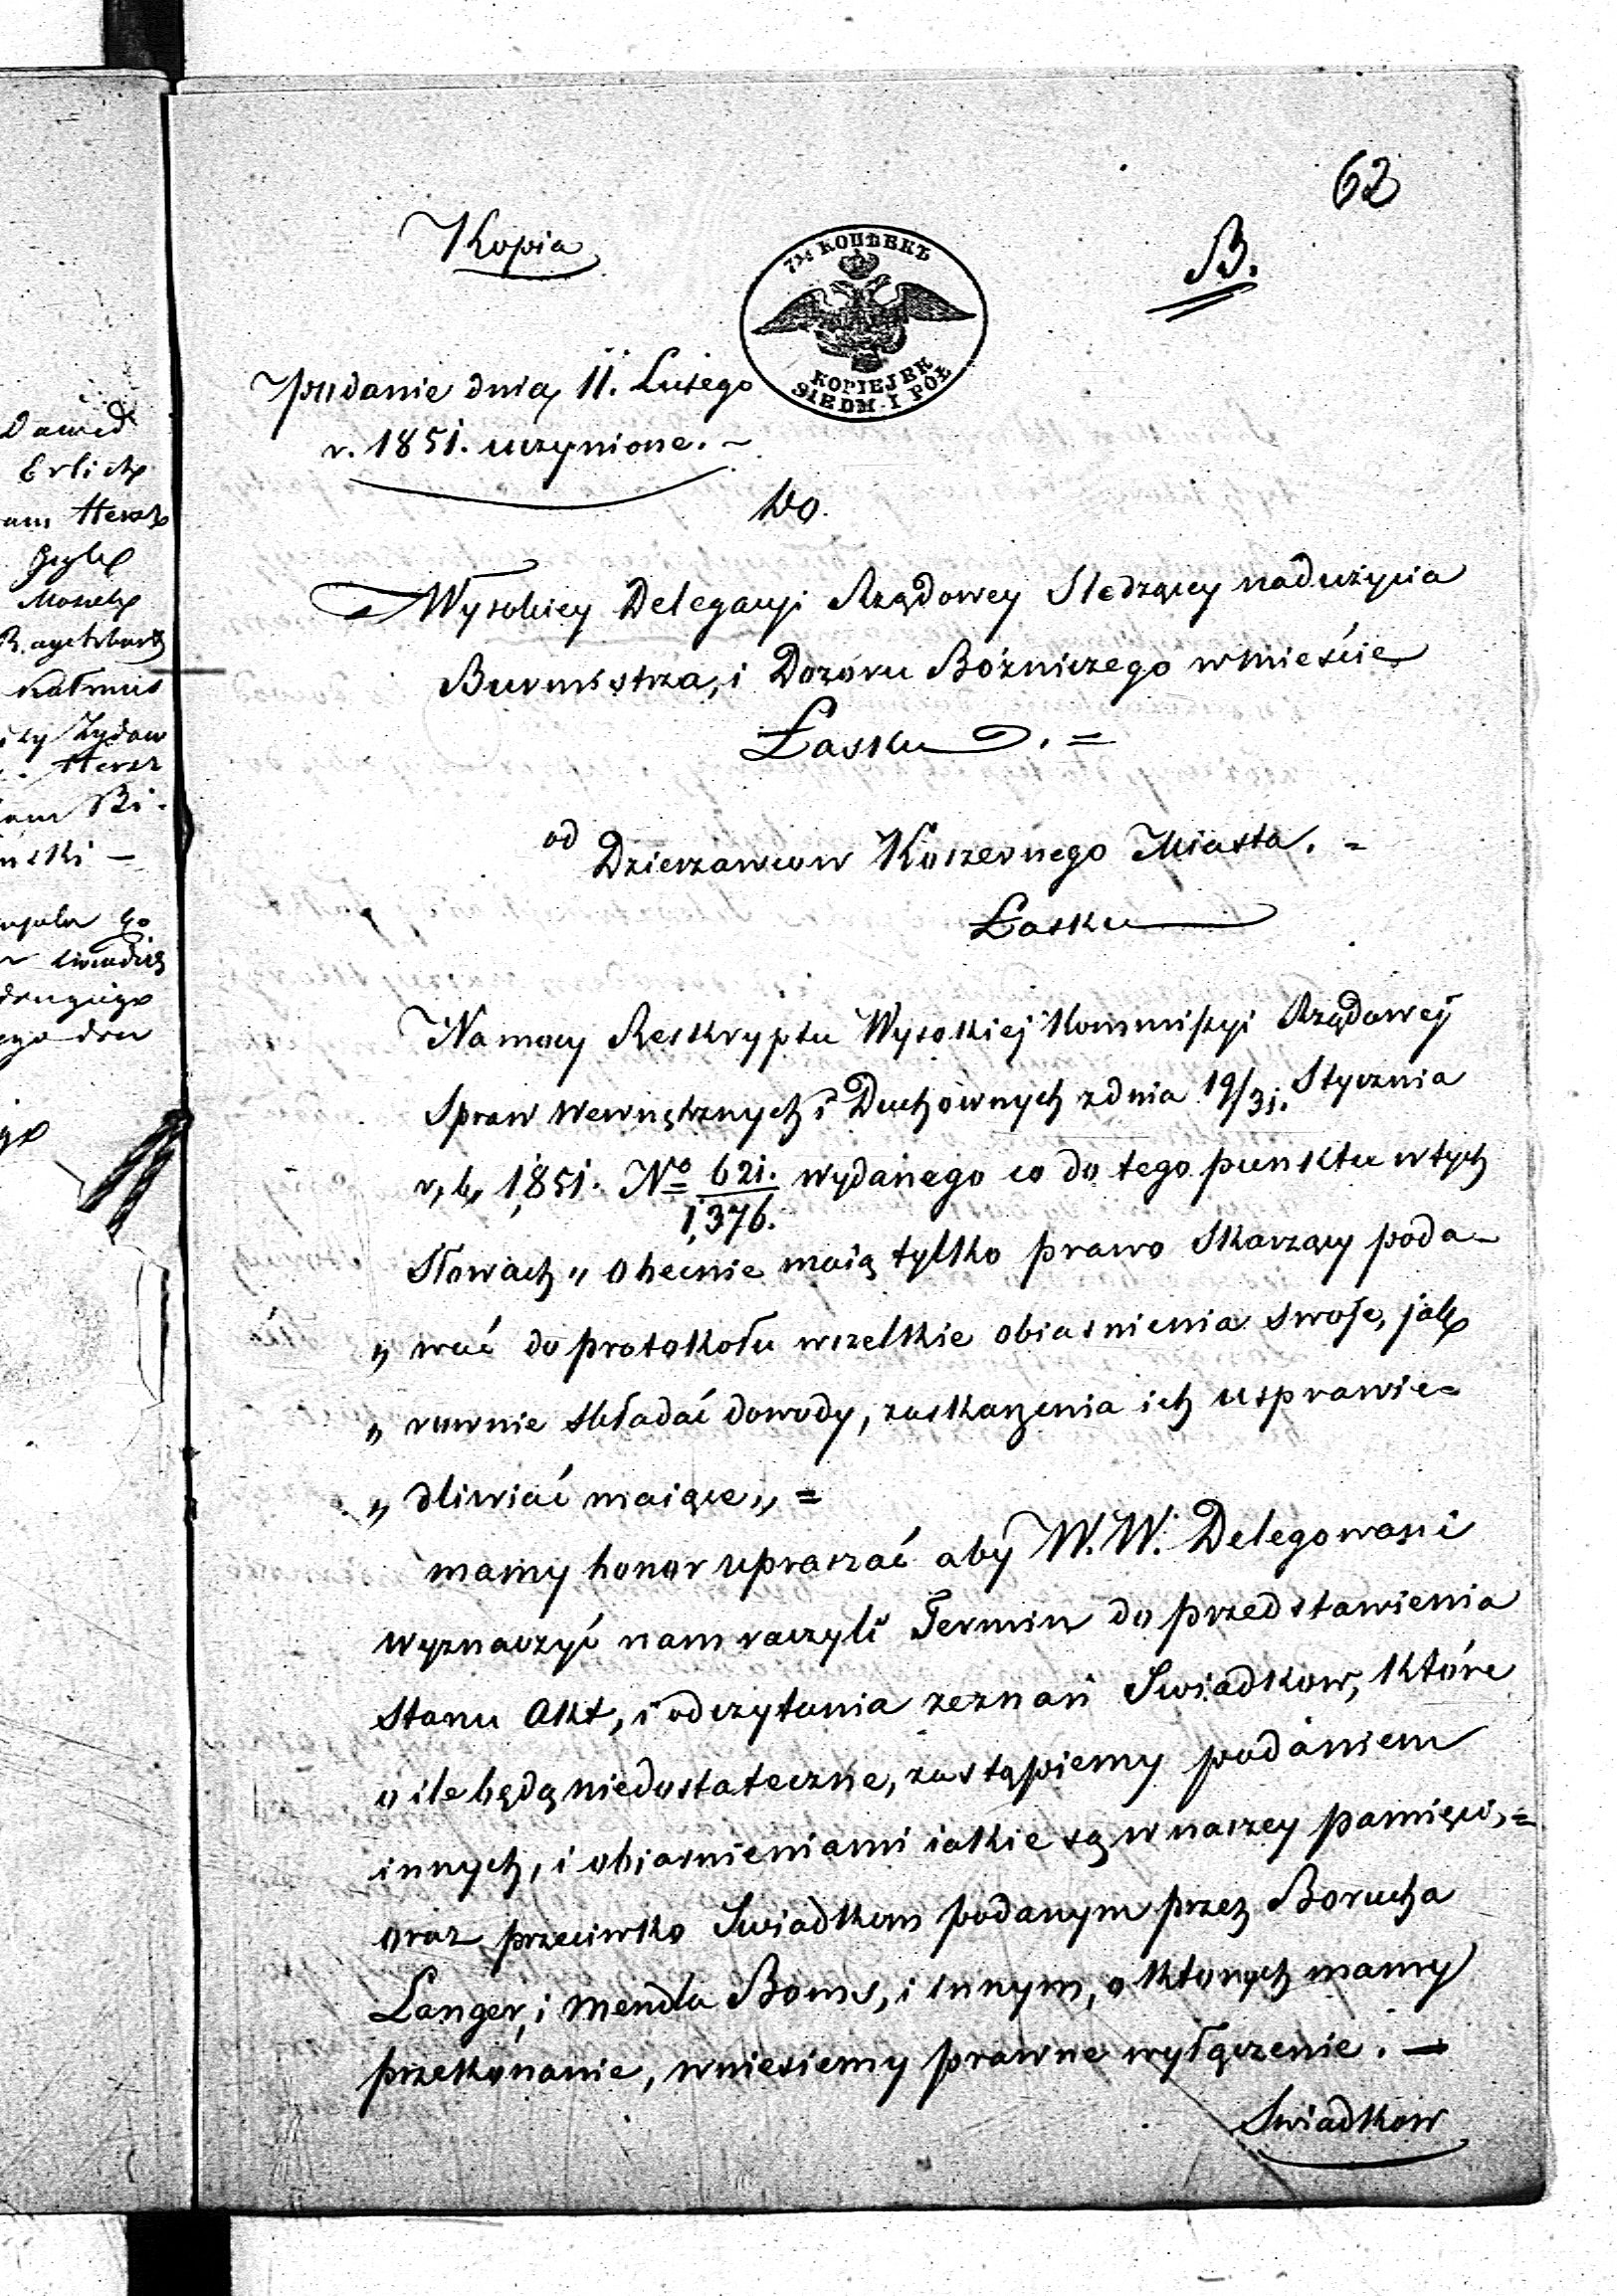 62
Kopia
B.
7½ КОПѢЕКЪ
KOPIEJEK
SIEDM I PÓŁ
Podanie dnia 11. Lutego
r. 1851. uczynione. –
Do.
Wysokiey Delegacyi Rządowey Sledzącey nadużycia
Burmistrza, i Dozoru Bożniczego w mieście
Łasku. =
od Dzierzawcow Koszernego Miasta. =
Łasku
Na mocy Reskryptu Wysokiej Kommissyi Rządowey
Spraw Wewnętrznych i Duchownych z dnia 19/31. Stycznia
r, b, 1851. No 621./1,376. wydanego co do tego punktu w tych
Słowach „ Obecnie maią tylko prawo Skarzący poda-
„ wać do protokołu wszelkie obiasnienia swoje, jak
„ rownie składać dowody, zaskarzenia ich usprawie=
„ dliwiać maiące „ =
mamy honor upraszać aby W.W. Delegowani
wyznaczyć nam raczyli Termin do przedstawienia
Stanu Akt, i odczytania zeznań Swiadkow, które
o ile będą niedostateczne, zastąpiemy podaniem
innych, i obiasnieniami iakie są w naszey pamięci, =
oraz przeciwko Swiadkom podanym przez Borucha
Langer, i Mendla Boms, i innym, o ktorych mamy
przekonanie, wniesiemy prawne wyłączenie. –
Swiadkow
Dawid
Erlich
Hersz
Moszek
Żydow
Hersz
Bi-
drugiego